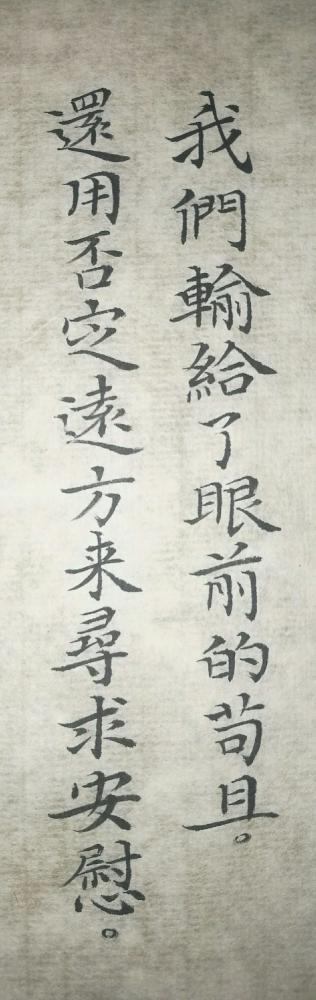 我們輸給了眼前的苟且。
還用否定遠方来尋求安慰。